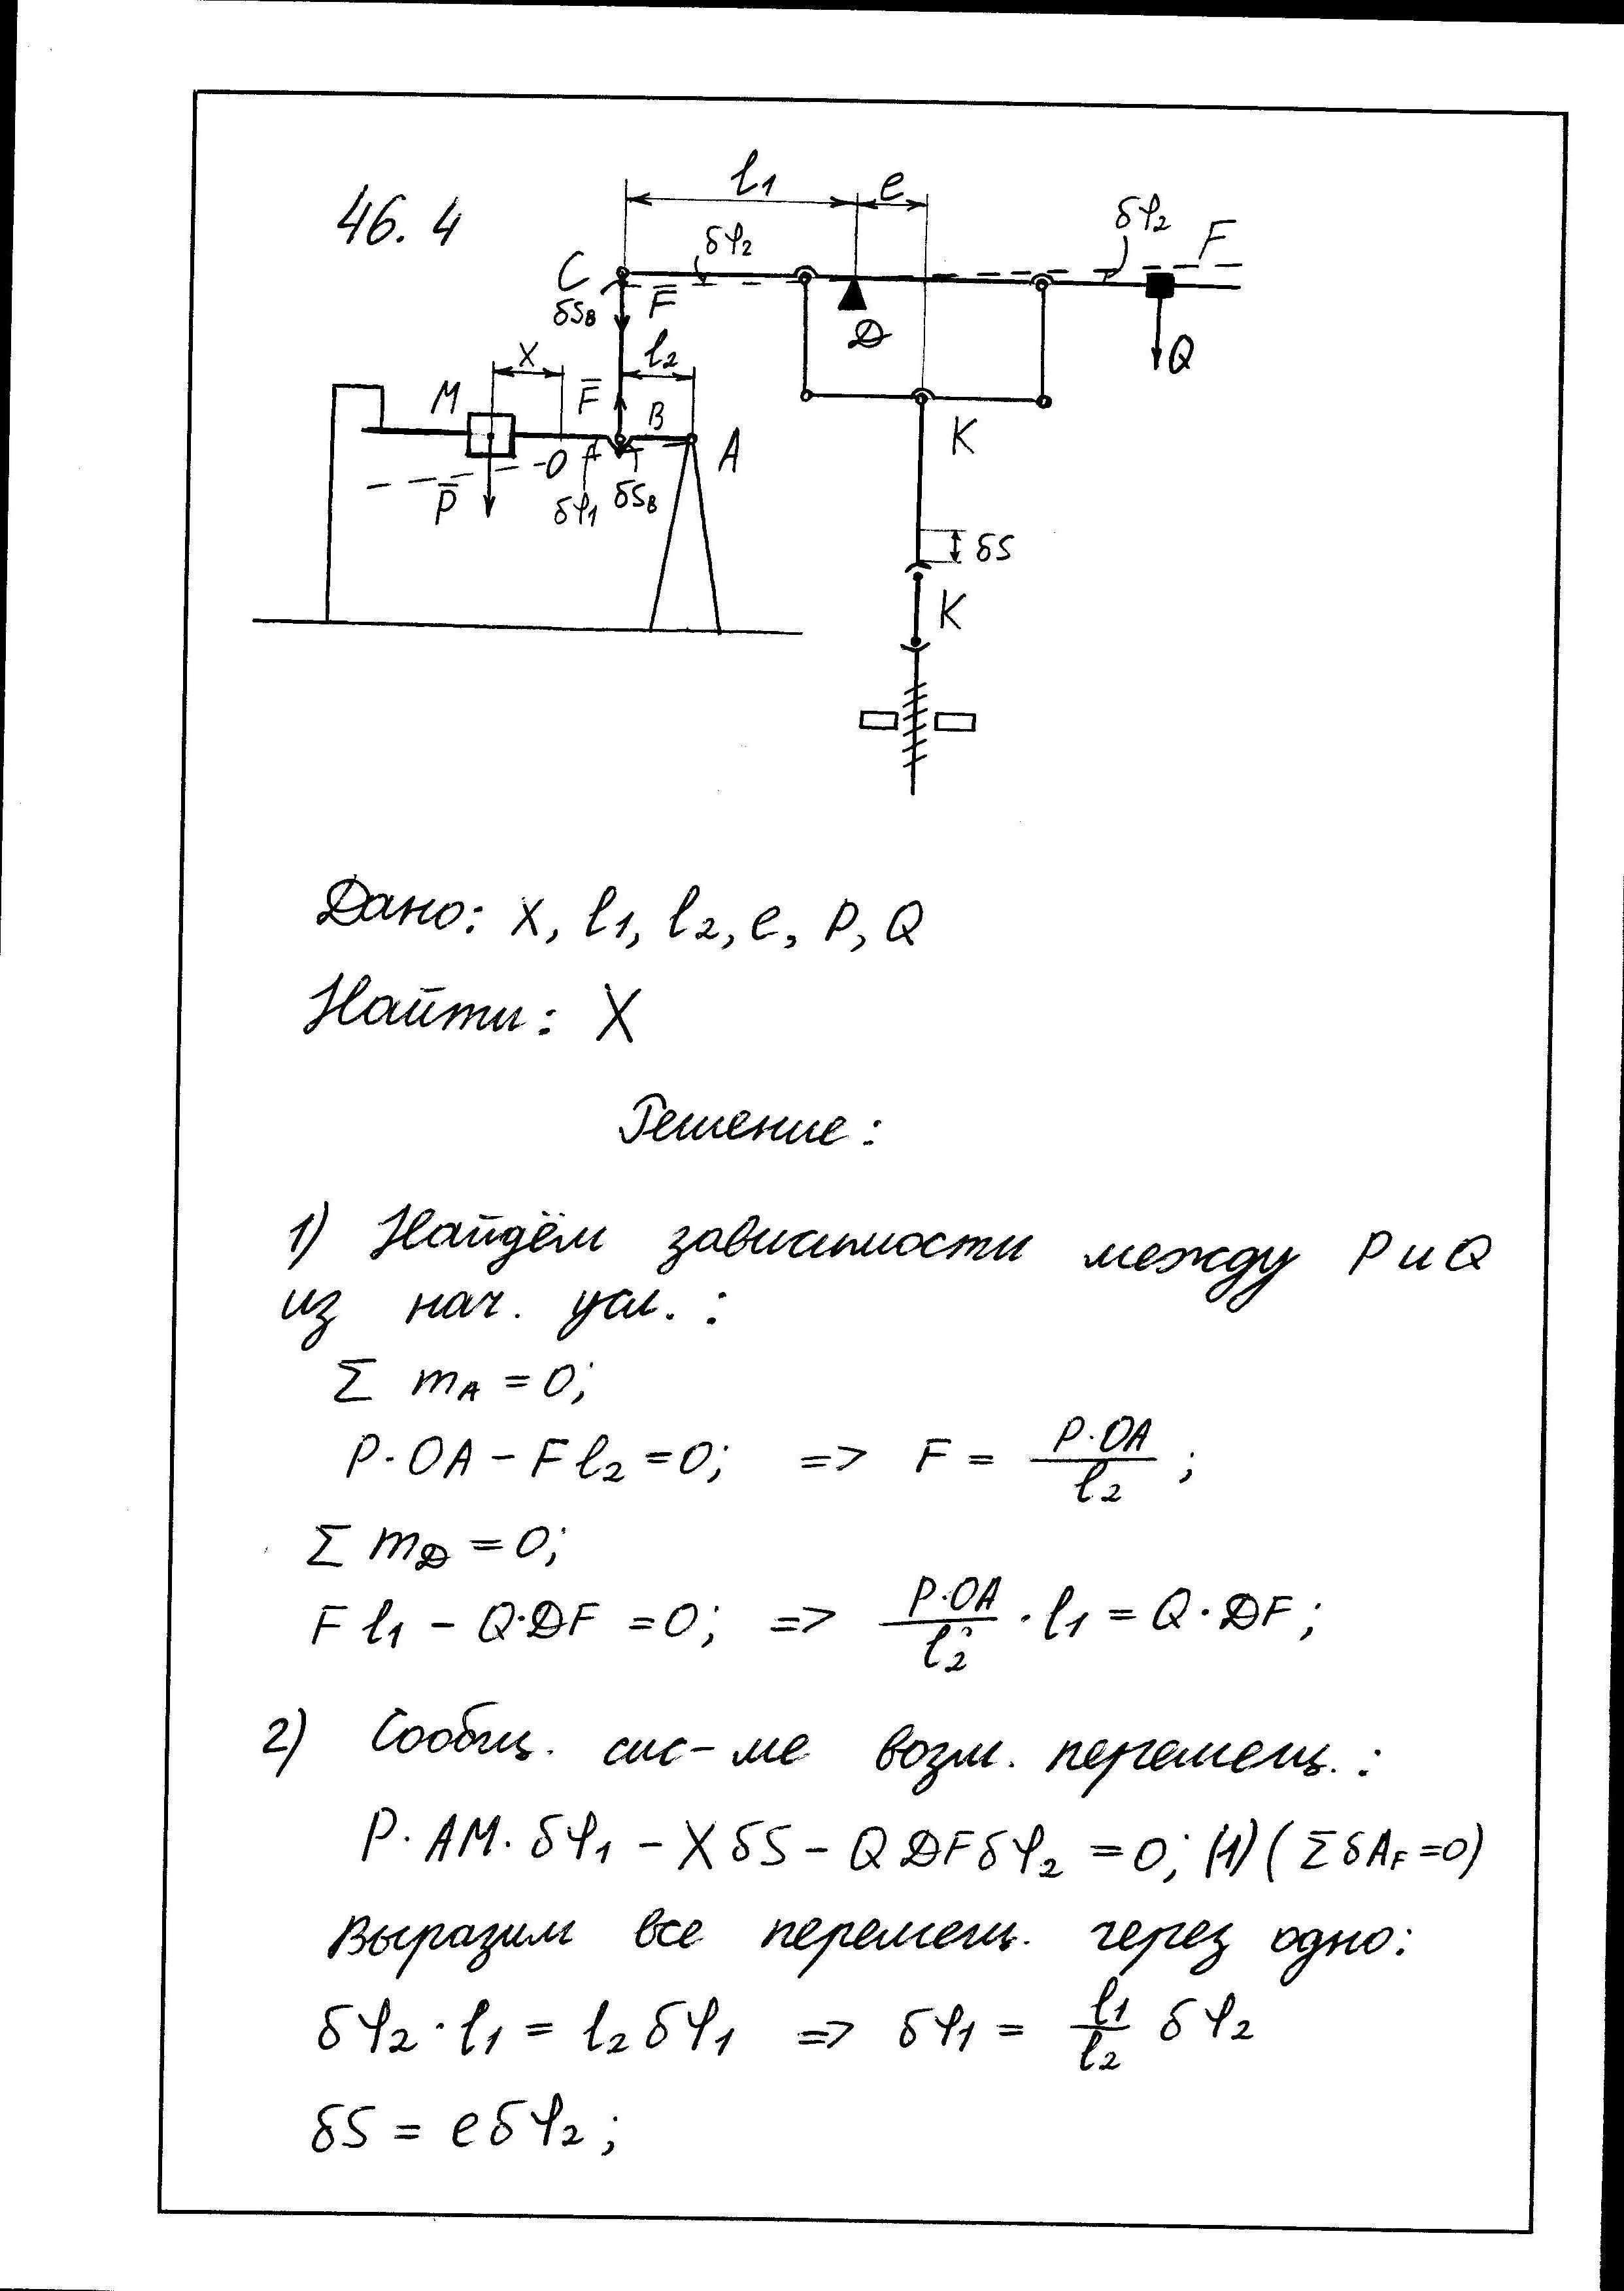 46. 4
l₁
e
δφ₂
δφ₂
F
C
δS_B
F̄
D
Q
x
l₂
M
F̄
B
A
K
O
P̄
δφ₁
δS_B
δS
K
Дано: x, l₁, l₂, e, P, Q
Найти: X
Решение:
1) Найдём зависимости между P и Q
из нач. усл. :
Σ m_A = 0;
P·OA − F l₂ = 0; => F = P·OA / l₂ ;
Σ m_D = 0;
F l₁ − Q·DF = 0; => P·OA / l₂ · l₁ = Q·DF ;
2) Сообщ. сис-ме возм. перемещ. :
P·AM·δφ₁ − XδS − Q DFδφ₂ = 0; (1) (ΣδA_F = 0)
Выразим все перемещ. через одно:
δφ₂·l₁ = l₂δφ₁ => δφ₁ = l₁ / l₂ δφ₂
δS = eδφ₂ ;